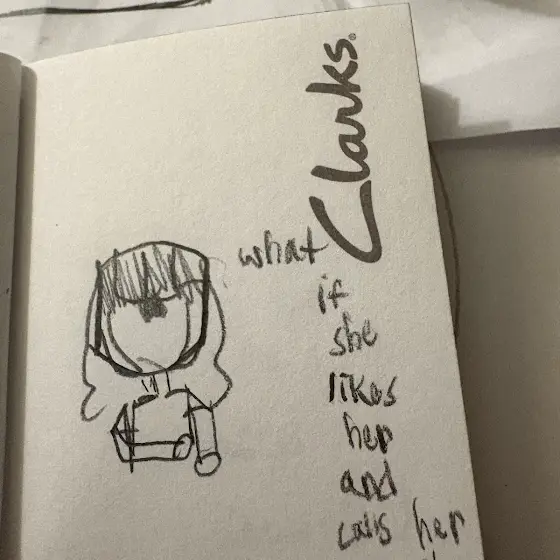 Clarks.
what
if
she
likes
her
and
calls her